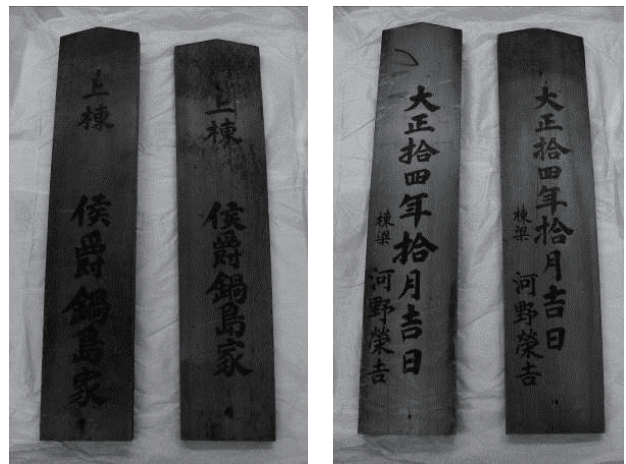 上棟 侯爵鍋島家
上棟 侯爵鍋島家
大正拾四年拾月吉日
棟梁 河野榮吉
大正拾四年拾月吉日
棟梁 河野榮吉